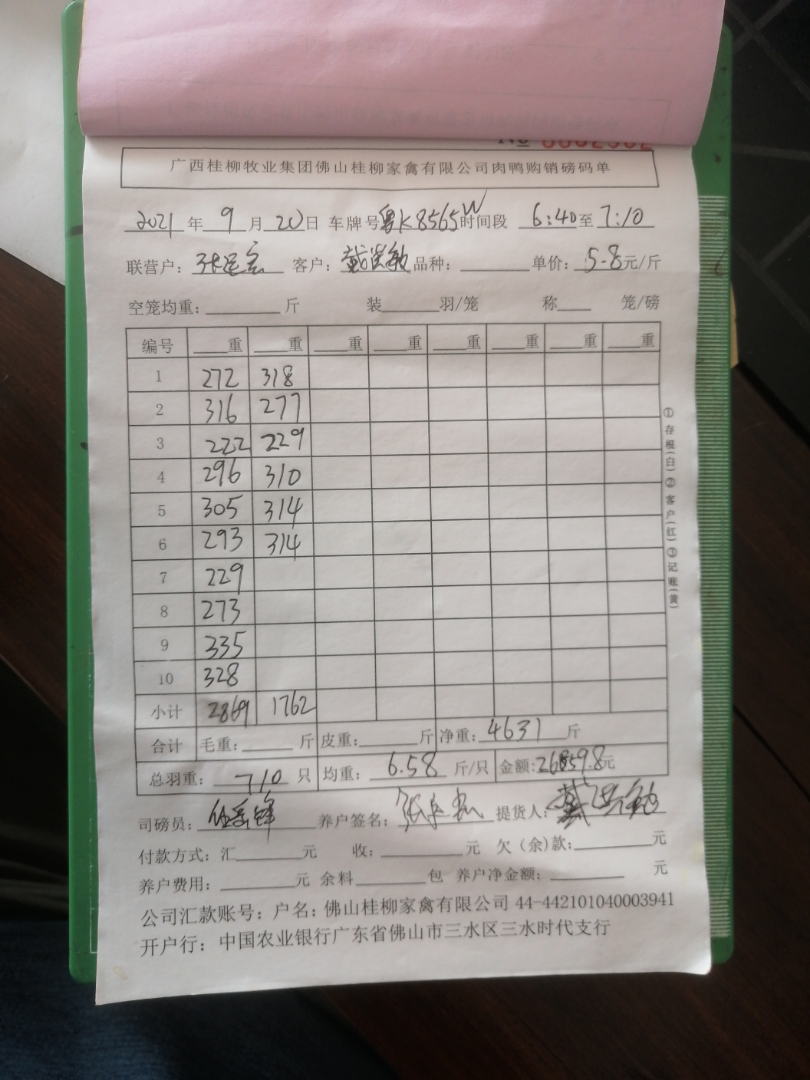 广西桂柳牧业集团佛山桂柳家禽有限公司肉鸭购销磅码单
2021 年 9 月 20 日 车牌号 粤K8565W 时间段 6:40 至 7:10
联营户: 客户: 品种: 单价: 5.8 元/斤
空笼均重: 斤 装 羽/笼 称 笼/磅
编号 重 重 重 重 重 重 重 重
1 272 318
2 316 277
3 222 229
4 296 310
5 305 314
6 293 314
7 229
8 273
9 335
10 328
小计 2869 1762
合计 毛重: 斤 皮重: 斤 净重: 4631 斤
总羽重: 710 只 均重: 6.58 斤/只 金额: 26859.8元
司磅员: 养户签名: 提货人:
付款方式: 汇 元 收: 元 欠(余)款: 元
养户费用: 元 余料 包 养户净金额: 元
公司汇款账号: 户名: 佛山桂柳家禽有限公司 44-442101040003941
开户行: 中国农业银行广东省佛山市三水区三水时代支行
①存根(白)②客户(红)③记账(黄)